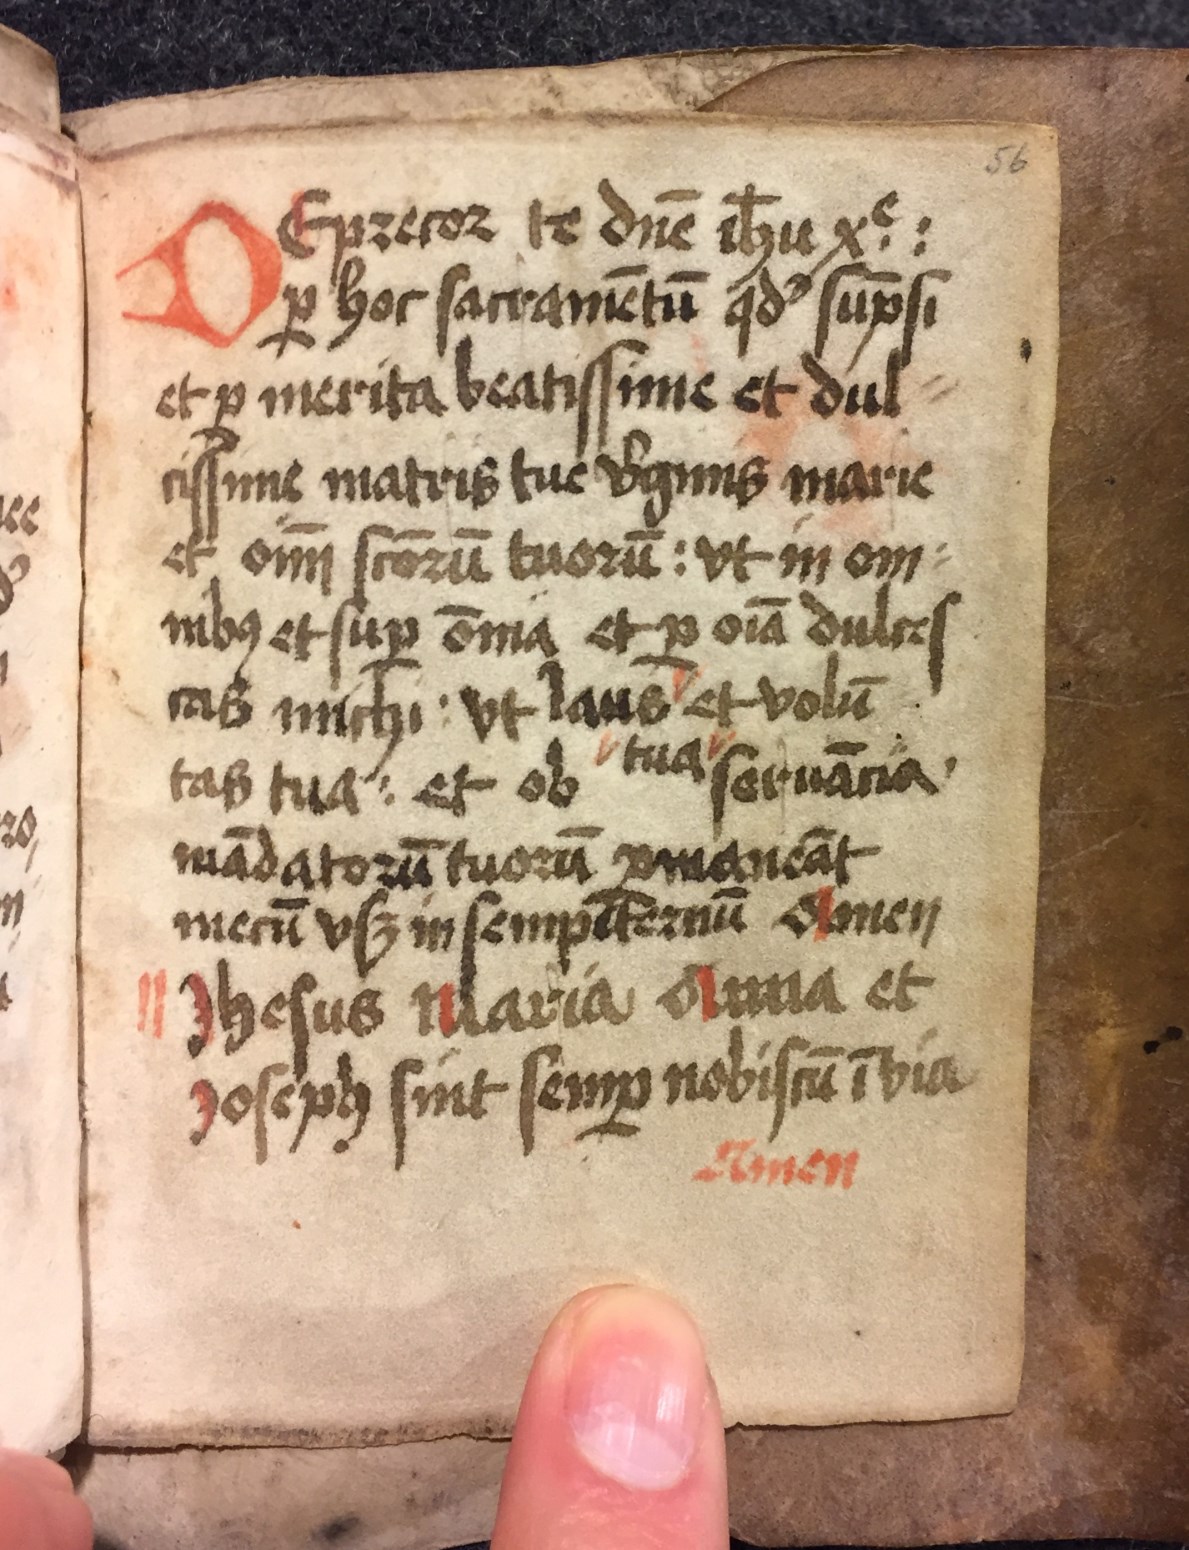 56
DEprecor te dn̄e ih̄u xᵉ :
ꝑ hoc sacramētū qd' sūpsi
et ꝑ merita beatissime et dul
cissime matris tue v̓ginis marie
et oīm scōrū tuorū : vt in om
nibꝰ et suꝑ om̄ia et ꝑ oīa dulces
cas michi : vt laus et volū
tas tua : et ob tua seruācia
mādatorū tuorū ꝑmaneāt
mecū vsqꝫ in sempit̄ernū Amen
Jhesus Maria Anna et
Joseph sint semꝑ nobiscū ī via
Amen